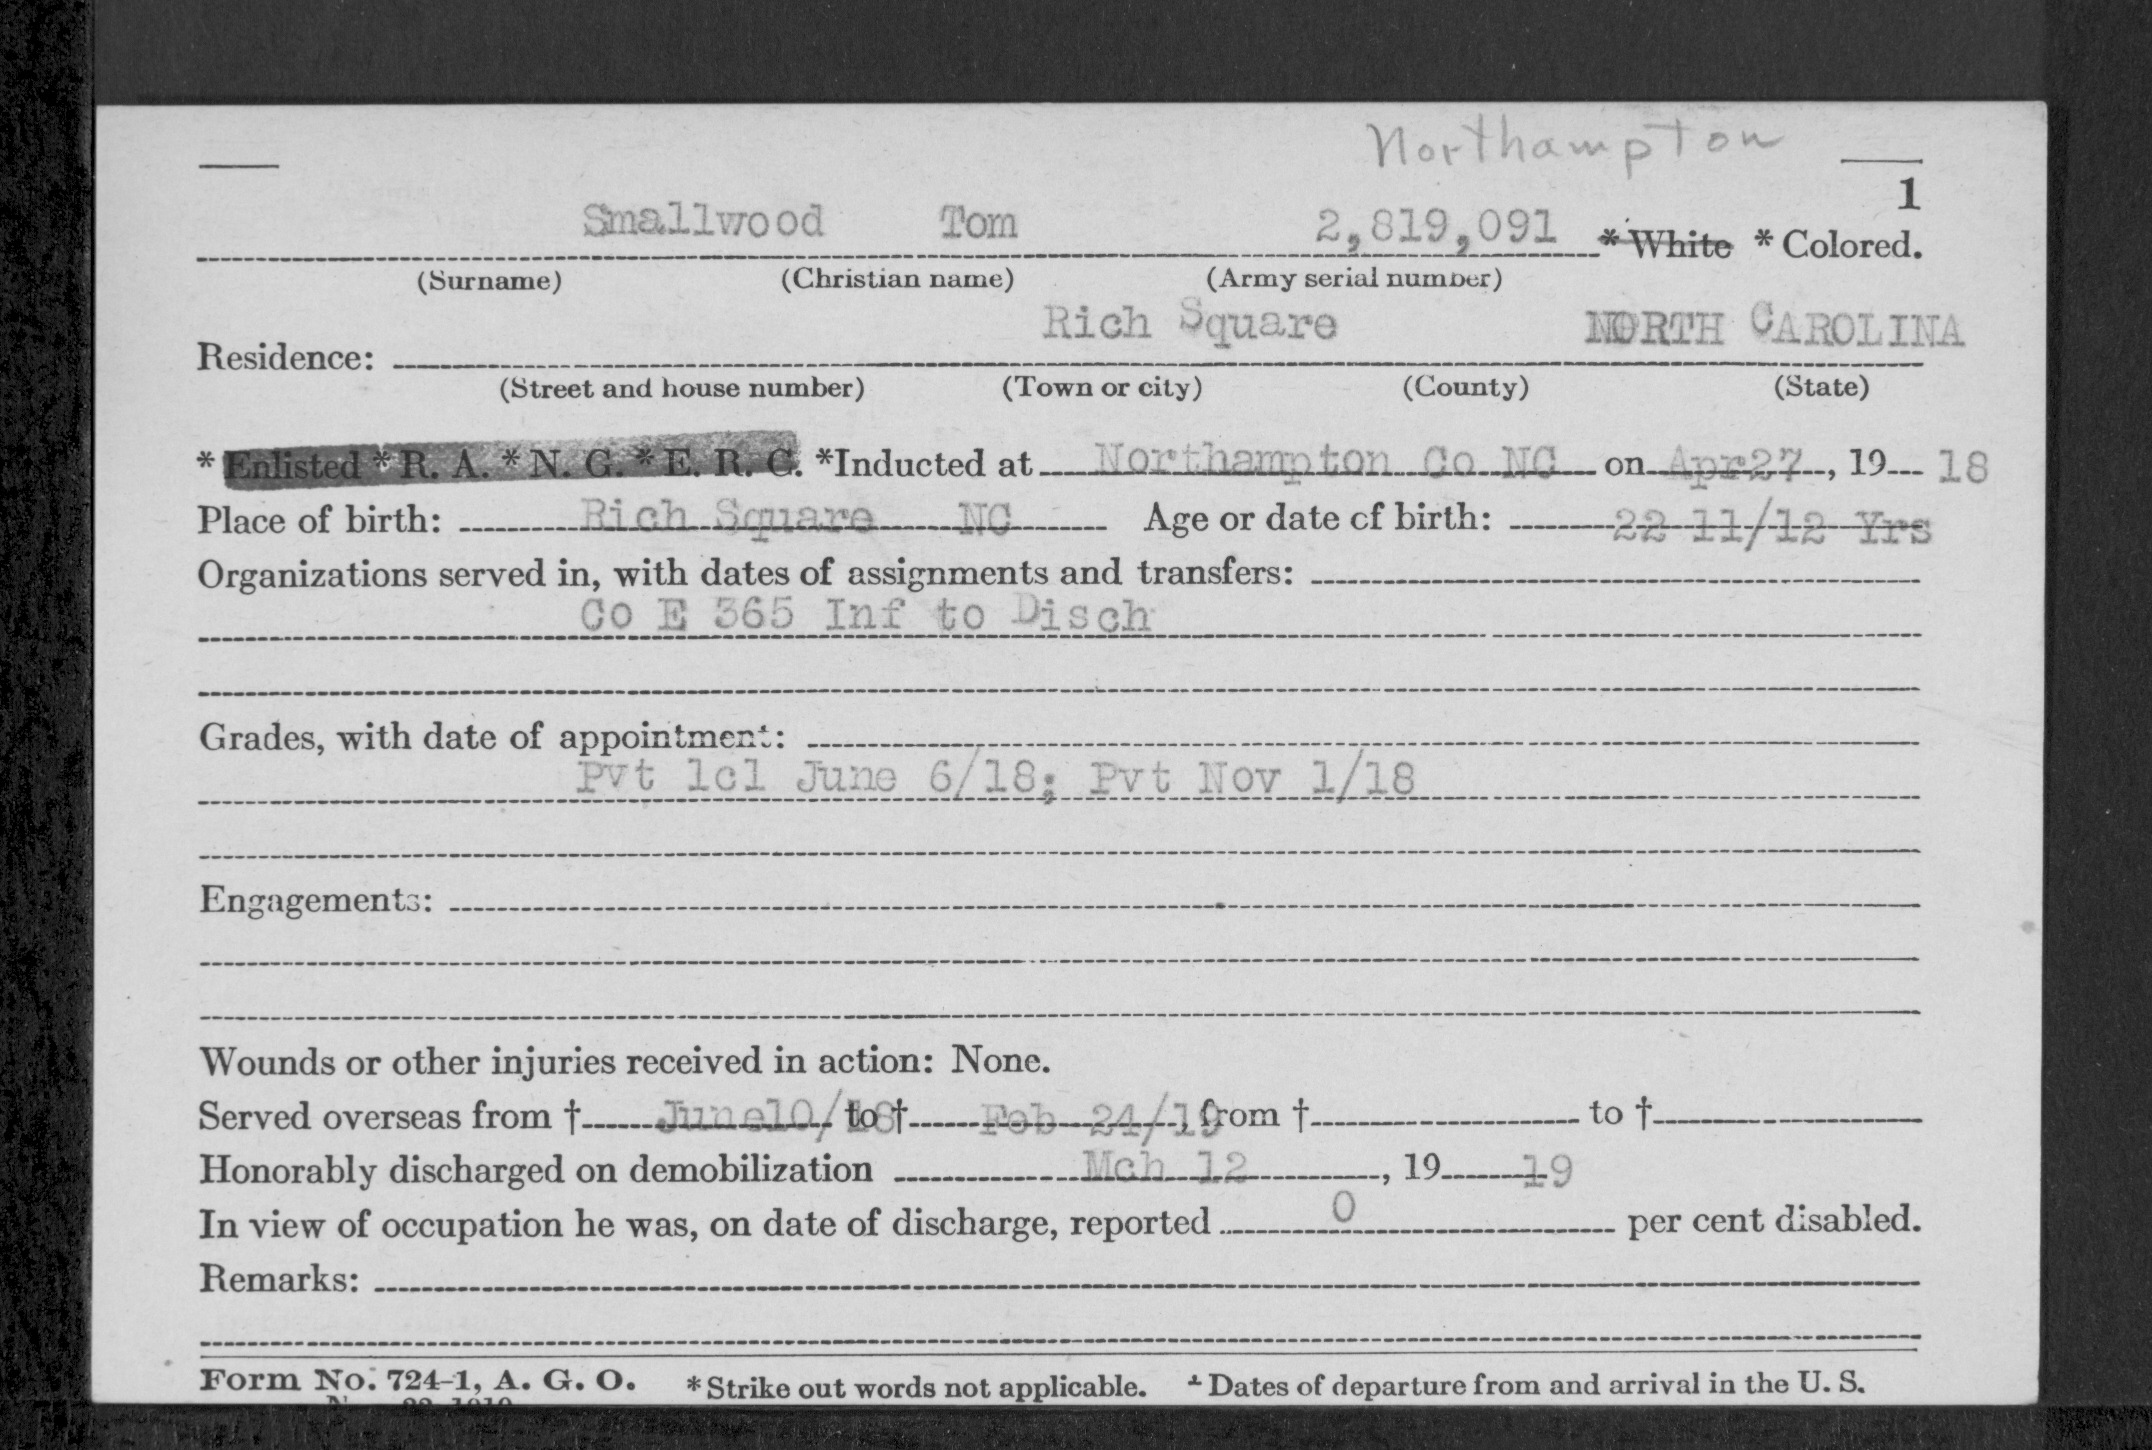 Northampton
1
Smallwood Tom 2,819,091 * White * Colored.
(Surname) (Christian name) (Army serial number)
Rich Square NORTH CAROLINA
Residence:
(Street and house number) (Town or city) (County) (State)
* Enlisted * R. A. * N. G. * E. R. C. *Inducted at Northampton Co NC on Apr 27, 19 18
Place of birth: Rich Square NC Age or date of birth: 22 11/12 Yrs
Organizations served in, with dates of assignments and transfers:
Co E 365 Inf to Disch
Grades, with date of appointment:
Pvt 1cl June 6/18; Pvt Nov 1/18
Engagements:
Wounds or other injuries received in action: None.
Served overseas from † June10/18 to † Feb 24/19, from † to †
Honorably discharged on demobilization Mch 12, 19 19
In view of occupation he was, on date of discharge, reported 0 per cent disabled.
Remarks:
Form No. 724-1, A. G. O. * Strike out words not applicable. † Dates of departure from and arrival in the U. S.